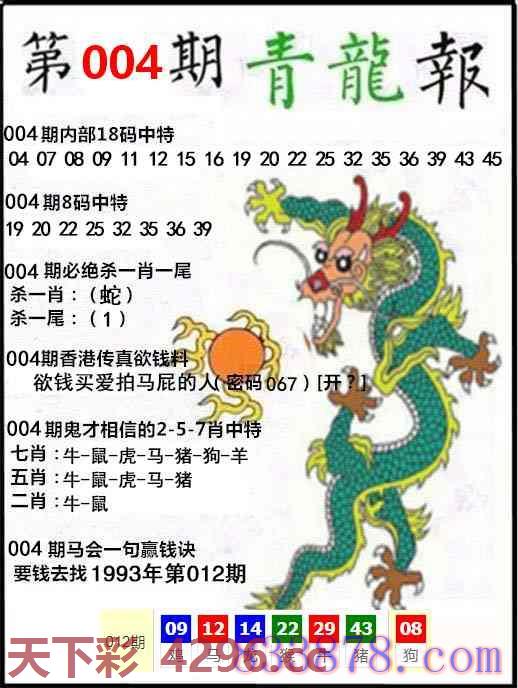 第004期青龍報
004期内部18码中特
04 07 08 09 11 12 15 16 19 20 22 25 32 35 36 39 43 45
004期8码中特
19 20 22 25 32 35 36 39
004 期必绝杀一肖一尾
杀一肖：（蛇）
杀一尾：（1）
004期香港传真欲钱料
欲钱买爱拍马屁的人(密码067)[开？]
004期鬼才相信的2-5-7肖中特
七肖：牛-鼠-虎-马-猪-狗-羊
五肖：牛-鼠-虎-马-猪
二肖：牛-鼠
004期马会一句赢钱诀
要钱去找1993年第012期
012期 09 12 14 22 29 43 08
鸡 马 龙 猴 牛 猪 狗
天下彩